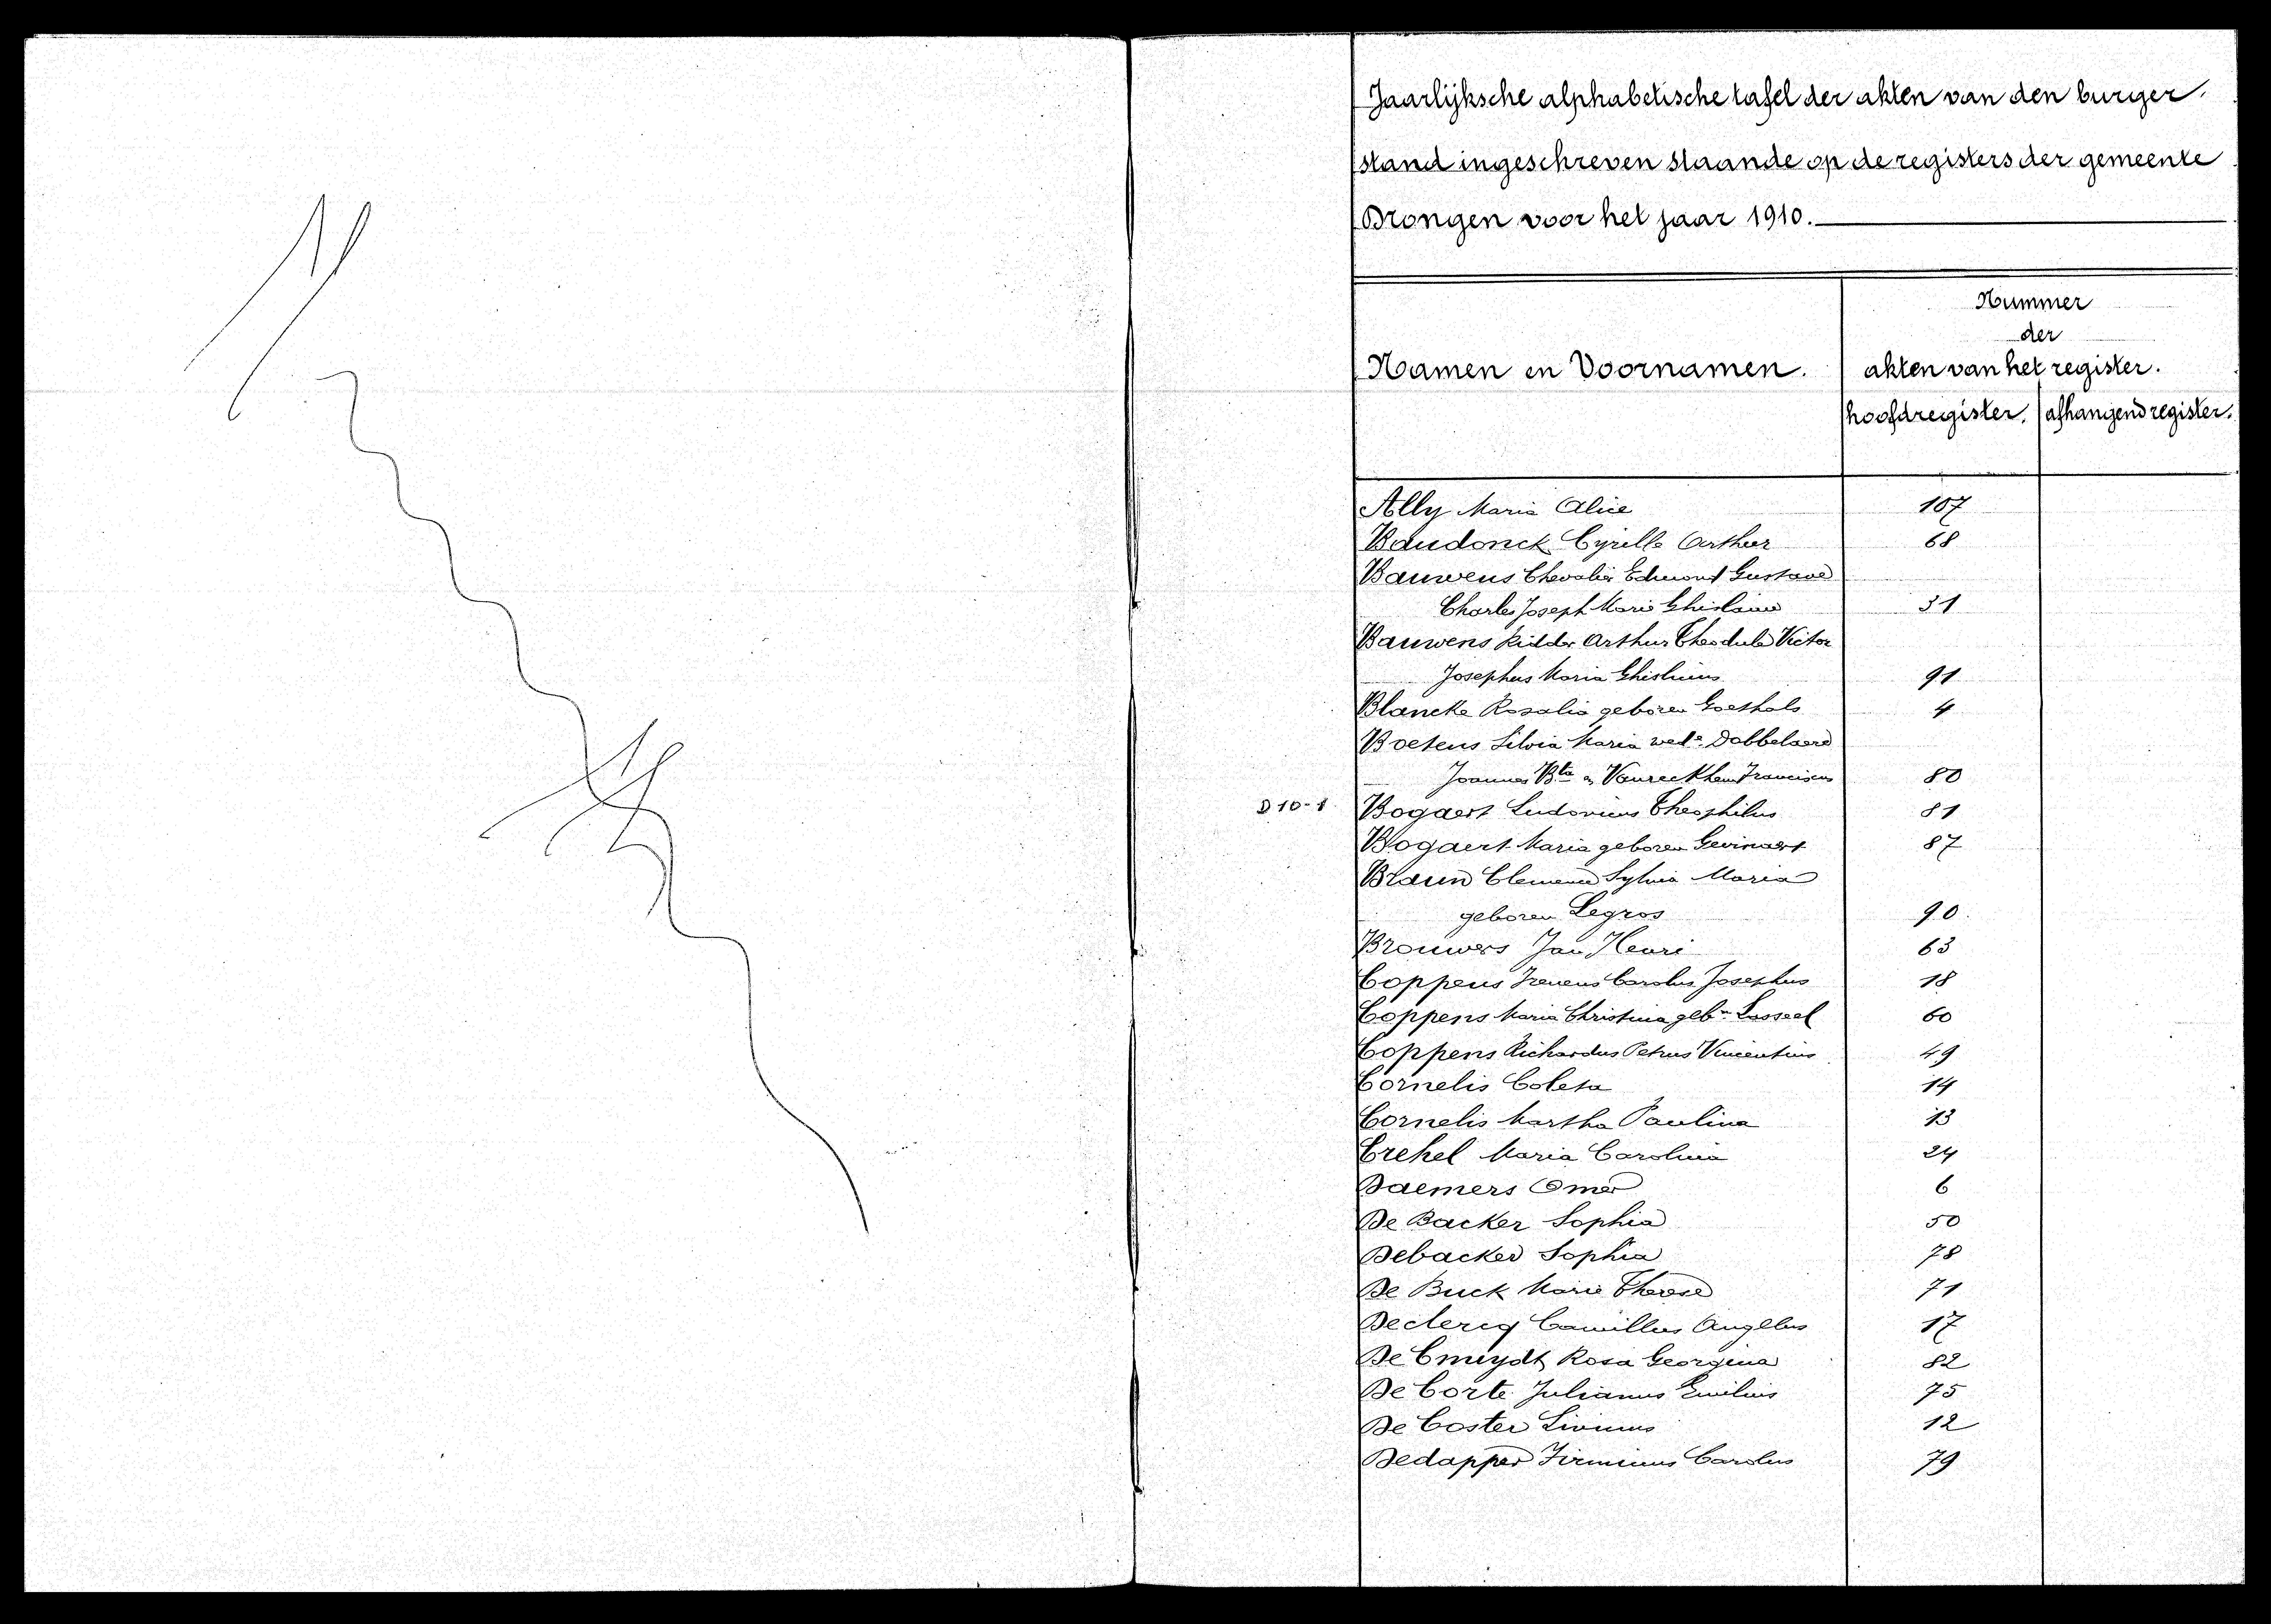 Jaarlijksche alphabetische tafel der akten van den burger-
stand ingeschreven staande op de registers der gemeente
Drongen voor het jaar 1910.
Namen en Voornamen.
Nummer
der
akten van het register.
hoofdregister. afhangend register.
Ally Maria Alice 107
Baudonck Cyrille Arthur 68
Bauwens Chevalier Edmond Gustave
Charles Joseph Marie Ghislain 31
Bauwens Ridder Arthur Theodule Victor
Josephus Maria Ghislenus 91
Blancke Rosalia geboren Goethals 4
Boetens Silvia Maria wede Dobbelaere
Joannes Bta en Vanreckhem Franciscus 80
D 10-1 Bogaert Ludovicus Theophilus 81
Bogaert Maria geboren Gevinaert 87
Braun Clemence Sylvia Maria
geboren Legros 90
Brouwers Jan Henri 63
Coppens Ireneus Carolus Josephus 18
Coppens Maria Christina gebn Lasseel 60
Coppens Richardus Petrus Vincentius 49
Cornelis Coleta 14
Cornelis Martha Paulina 13
Crehel Maria Carolina 24
Daemers Omer 6
De Backer Sophia 50
Debacker Sophia 78
De Buck Marie Therese 71
Declercq Camillus Angelus 17
De Cmuydt Rosa Georgina 82
De Corte Julianus Emilius 75
De Coster Livinus 12
Dedapper Firminus Carolus 79